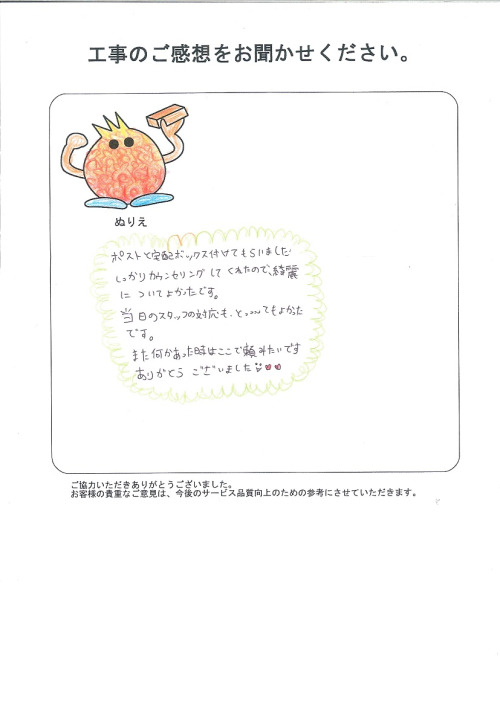 工事のご感想をお聞かせください。
ぬりえ
ポストと宅配ボックス付けてもらいました
しっかりカウンセリングしてくれたので、綺麗
についてよかったです。
当日のスタッフの対応も、とっっってもよかった
です。
また何かあった時はここで頼みたいです
ありがとう ございました
ご協力いただきありがとうございました。
お客様の貴重なご意見は、今後のサービス品質向上のための参考にさせていただきます。